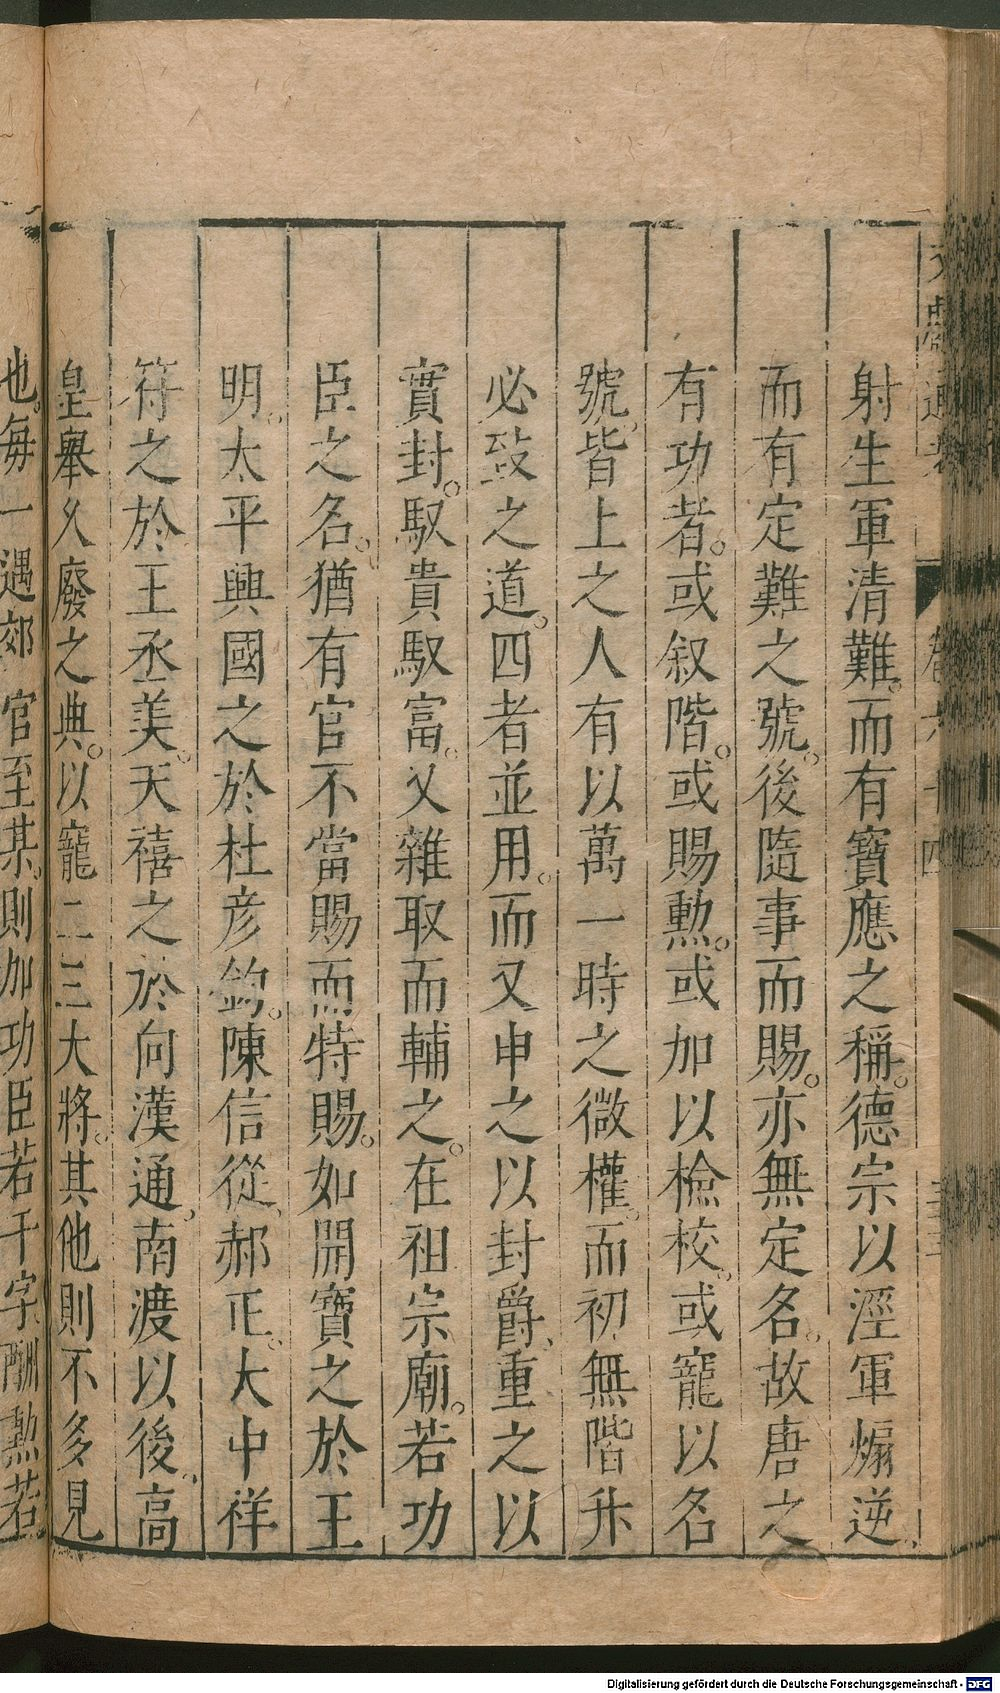 文獻通考 卷六十四
射生軍清難。而有寶應之稱。德宗以涇軍煽逆、
而有定難之號。後隨事而賜。亦無定名。故唐之
有功者。或叙階。或賜勲。或加以檢校。或寵以名
號。皆上之人有以萬一時之微權。而初無階升
必致之道。四者並用。而又申之以封爵、重之以
實封。馭貴馭富。又雜取而輔之。在祖宗廟。若功
臣之名。猶有官不當賜而特賜。如開寶之於王
明。太平興國之於杜彦鈞。陳信從、郝正。大中祥
符之於王丞美。天禧之於向漢通、南渡以後、高
皇舉久廢之典。以寵二三大將。其他則不多見
也。每一遇郊官至某。則加功臣若干字、酬勲若
Digitalisierung gefördert durch die Deutsche Forschungsgemeinschaft - DFG